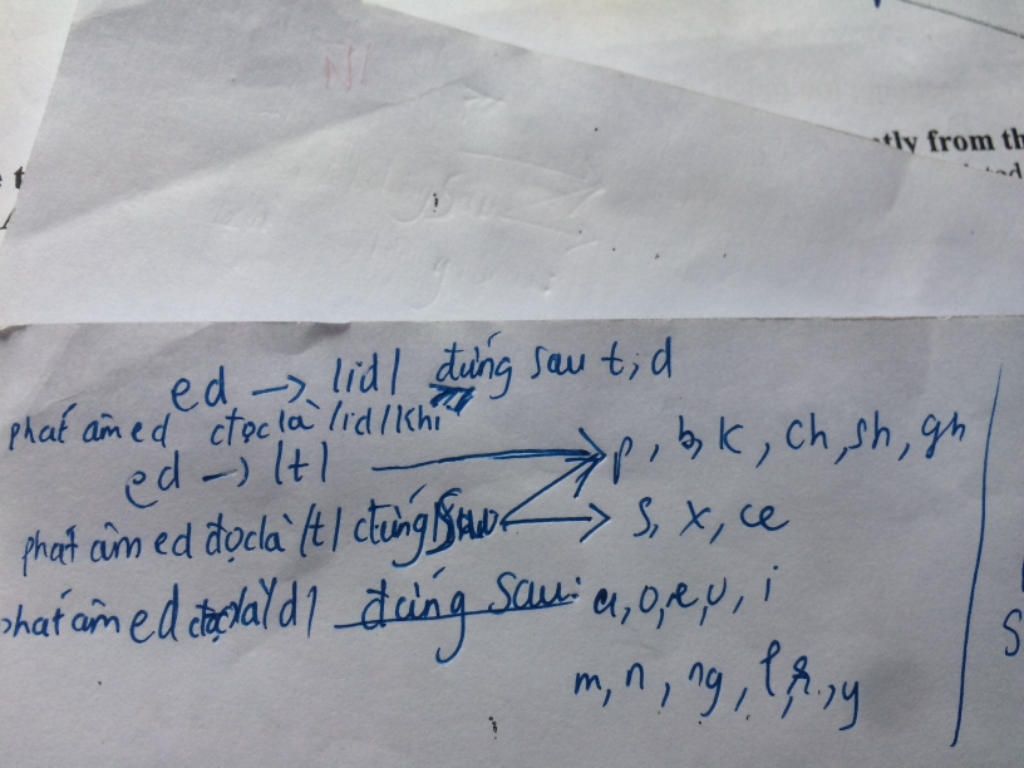 tly from th
ed → /id/ đứng sau t, d
phát âm ed đọc là /id/ khi
ed → /t/ p, b, k, ch, sh, gh
phát âm ed đọc là /t/ đứng sau s, x, ce
phát âm ed đọc là /d/ đứng sau: a, o, e, u, i
m, n, ng, l, r, y